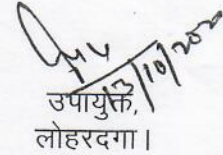 13/10/202
उपायुक्त,
लोहरदगा।